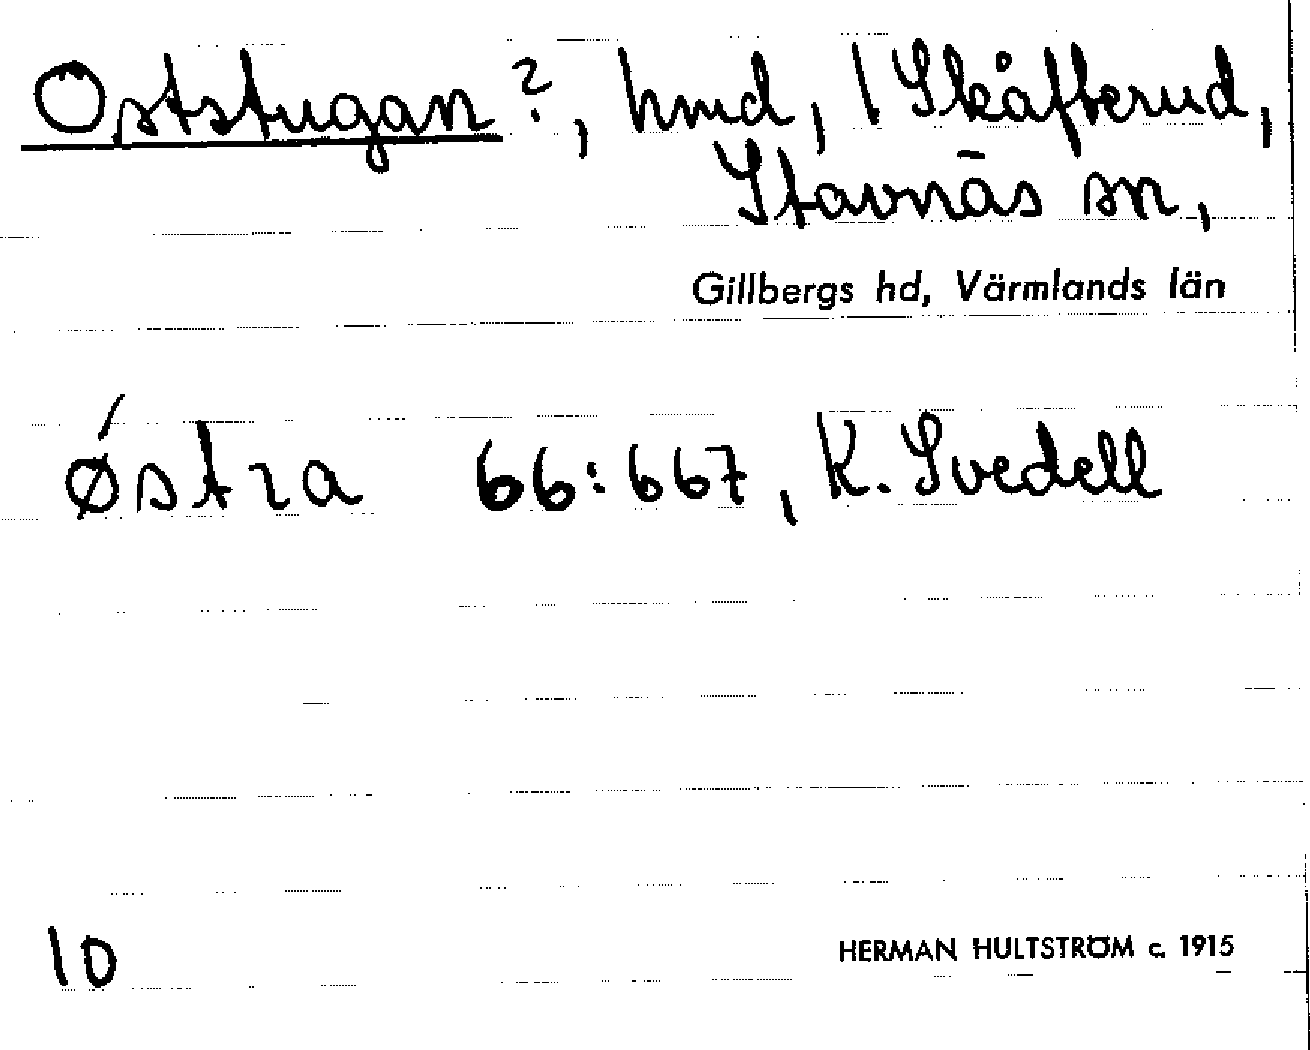 Oststugan?, hmd, l Skåfterud,
Stavnäs sn,
Gillbergs hd, Värmlands län
ǿstra 66:667, K. Svedell
10 HERMAN HULTSTRÖM c. 1915